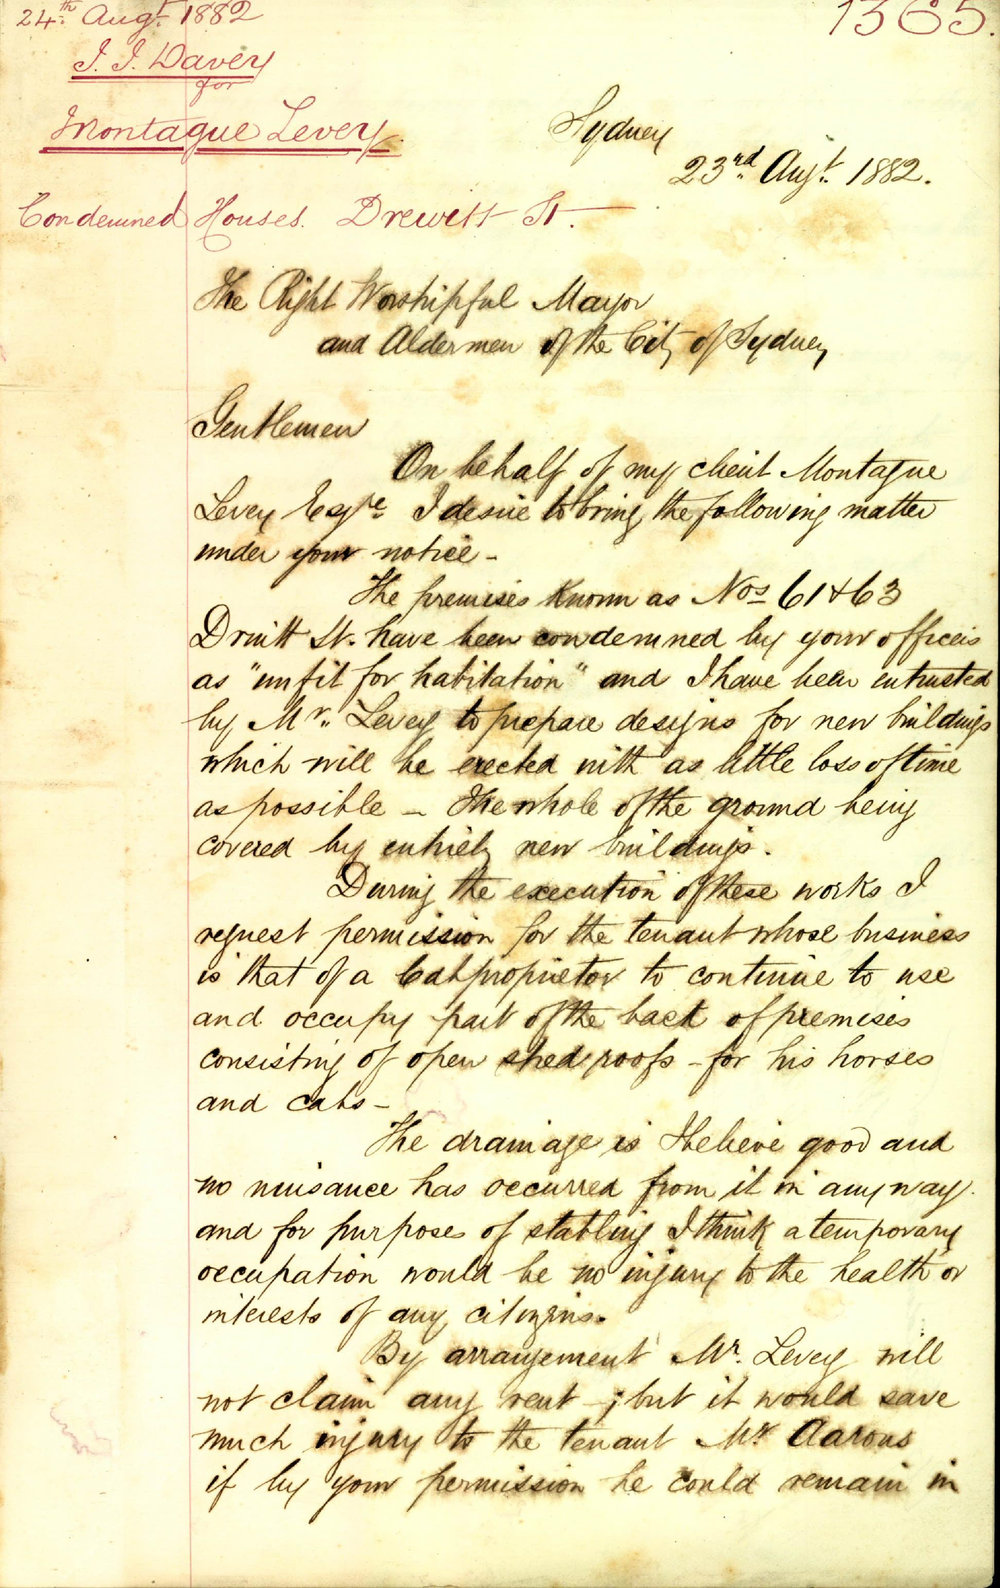 24th Augt. 1882
1365.
J. J. Davey
for
Montague Levey.
Sydney
23rd Augt. 1882.
Condemned Houses. Drewitt St.
The Right Worshipful Mayor
and Aldermen of the City of Sydney
Gentlemen
On behalf of my client Montague
Levey Esqre. I desire to bring the following matter
under your notice -
The premises known as Nos 61 & 63
Druitt St. have been condemned by your officers
as "unfit for habitation" and I have been entrusted
by Mr. Levey to prepare designs for new buildings
which will be erected with as little loss of time
as possible - the whole of the ground being
covered by entirely new buildings.
During the execution of these works I
request permission for the tenant whose business
is that of a Cab proprietor to continue to use
and occupy part of the back of premises
consisting of open shed roofs - for his horses
and cabs -
The drainage is I believe good and
no nuisance has occurred from it in any way.
and for purposes of stabling I think a temporary
occupation would be no injury to the health or
interests of any citizens.
By arrangement Mr. Levey will
not claim any rent -; but it would save
much injury to the tenant Mr Aarons
if by your permission he could remain in